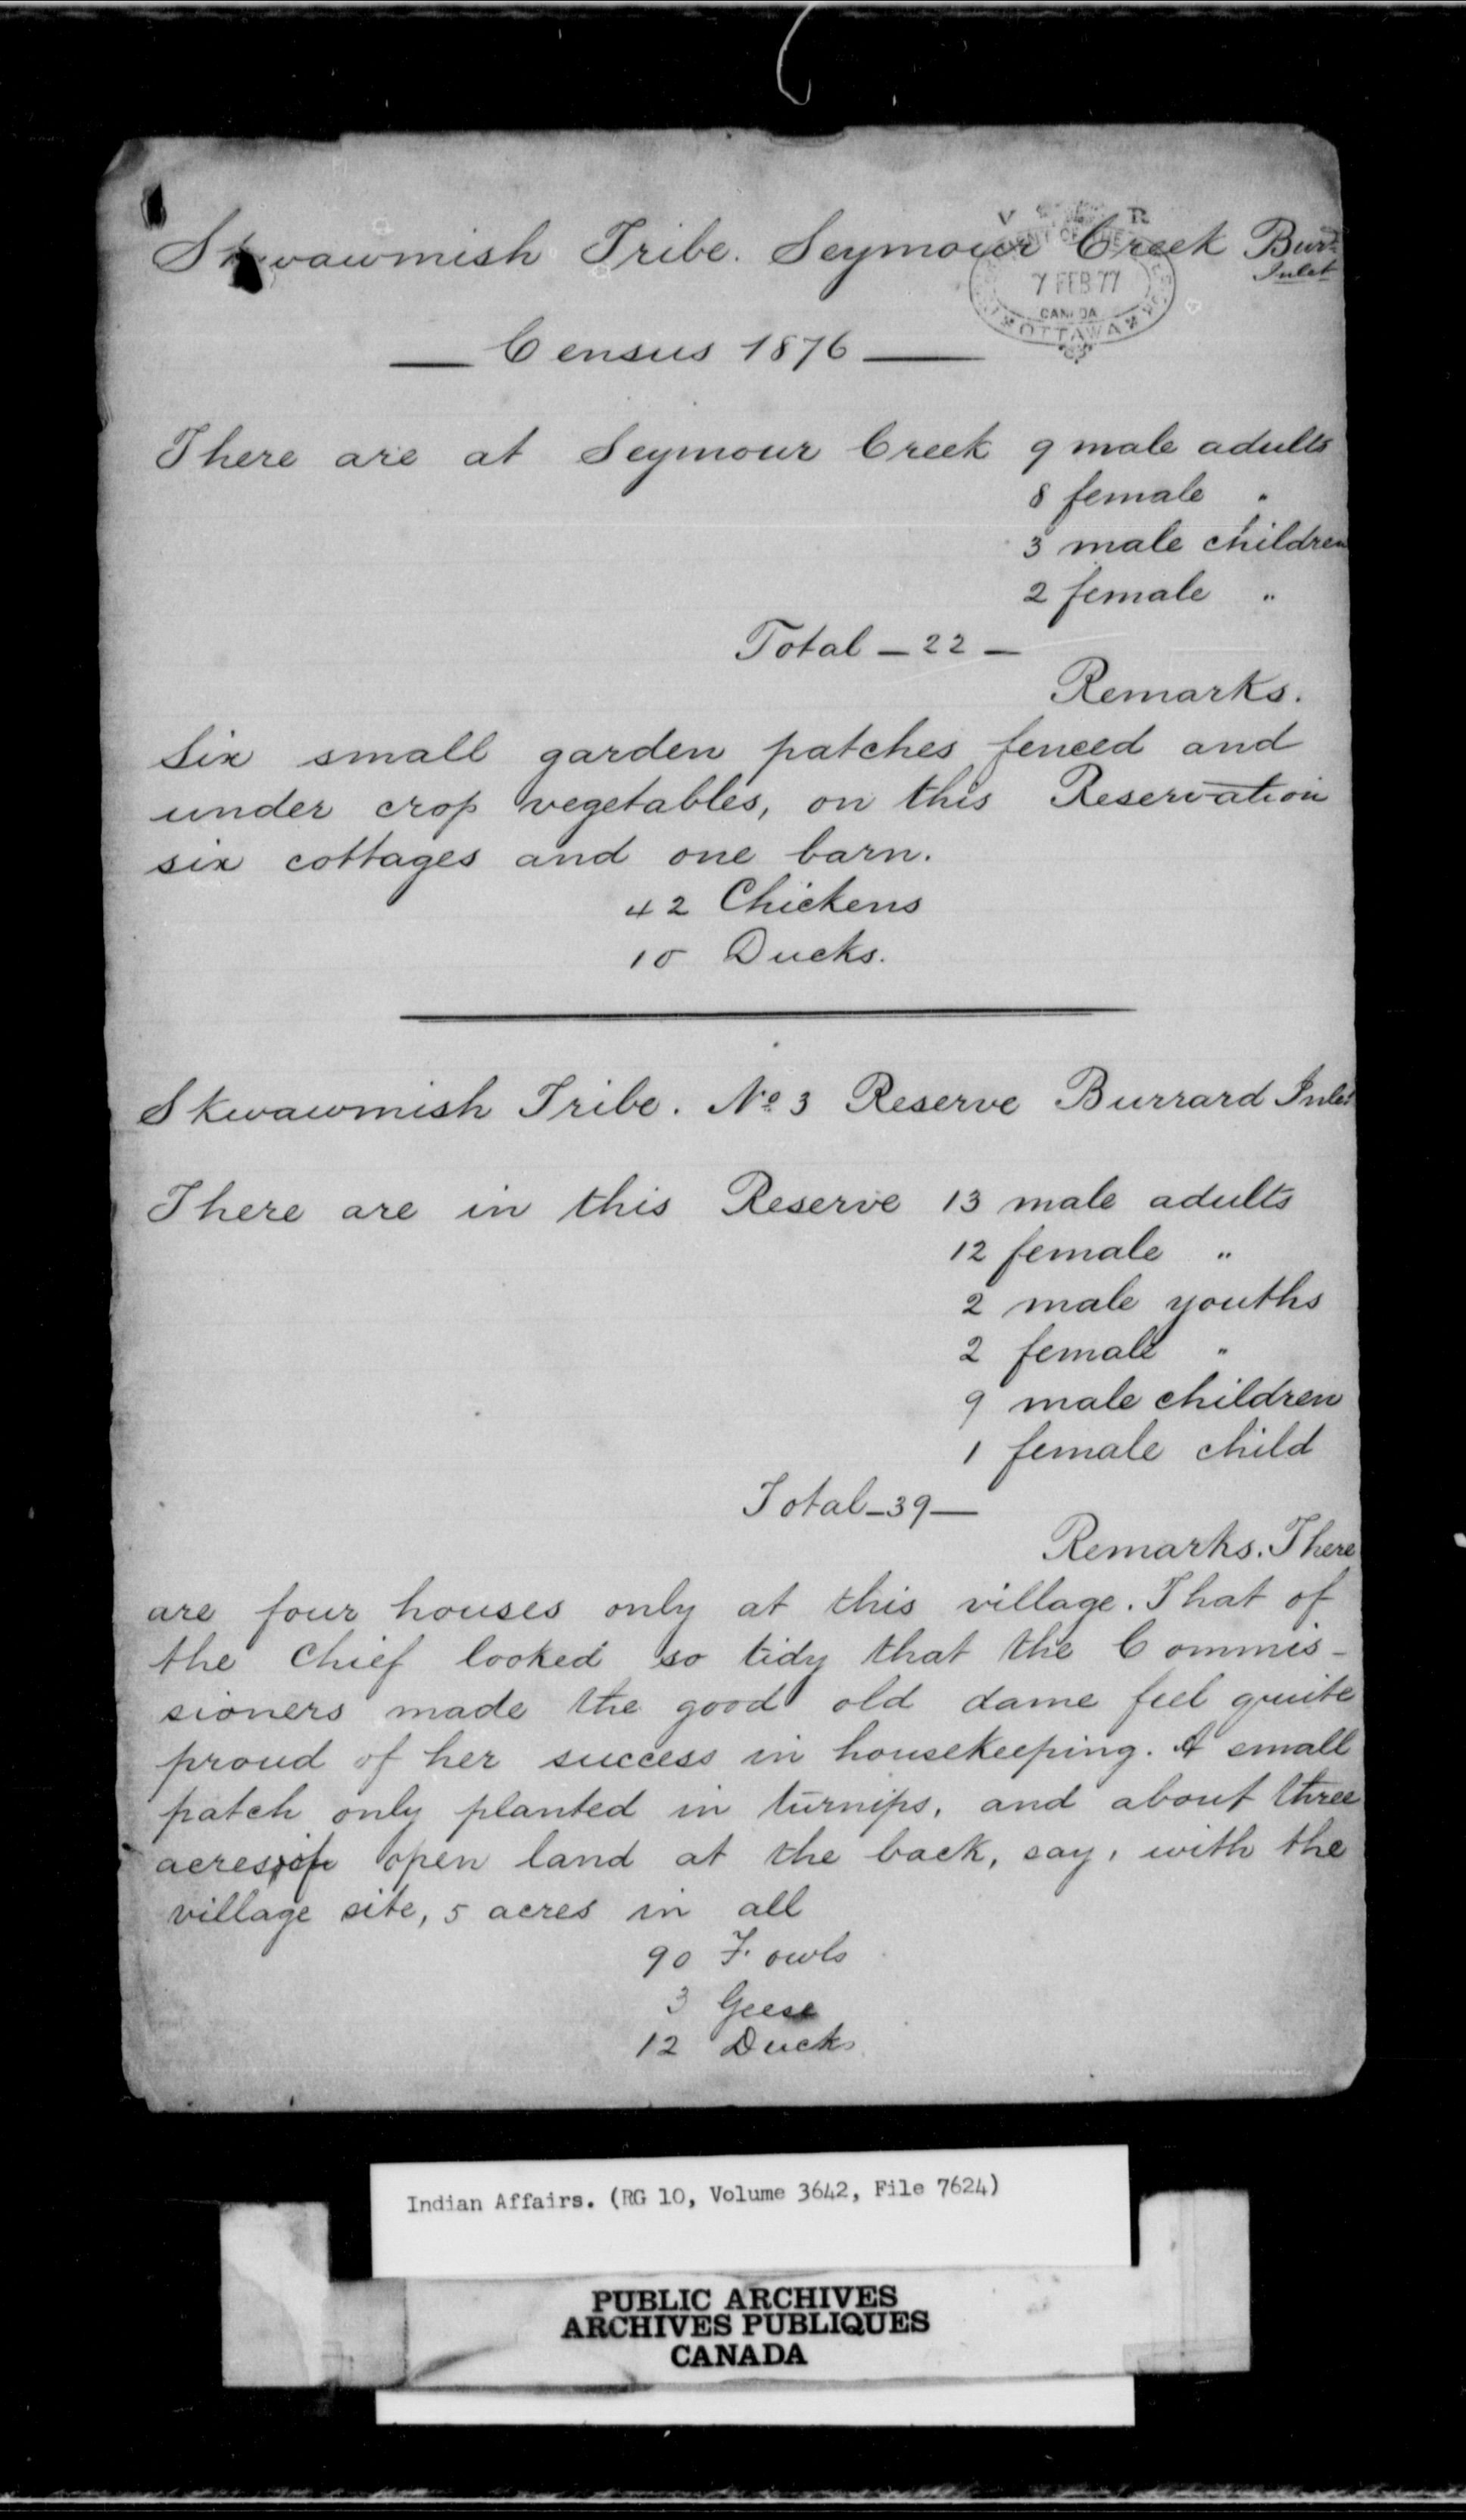 Skwawmish Tribe. Seymour Creek Burd.
Inlet
V R
7 FEB 77
CANADA
OTTAWA
— Census 1876 —
There are at Seymour Creek 9 male adults
8 female "
3 male children
2 female "
Total — 22 —
Remarks.
Six small garden patches fenced and
under crop vegetables, on this Reservation
six cottages and one barn.
42 Chickens
10 Ducks.
Skwawmish Tribe. No 3 Reserve Burrard Inlet
There are in this Reserve 13 male adults
12 female "
2 male youths
2 female "
9 male children
1 female child
Total — 39 —
Remarks. There
are four houses only at this village. That of
the Chief looked so tidy that the Commis-
sioners made the good old dame feel quite
proud of her success in housekeeping. A small
patch only planted in turnips, and about three
acres of open land at the back, say, with the
village site, 5 acres in all
90 Fowls
3 Geese
12 Ducks
Indian Affairs. (RG 10, Volume 3642, File 7624)
PUBLIC ARCHIVES
ARCHIVES PUBLIQUES
CANADA